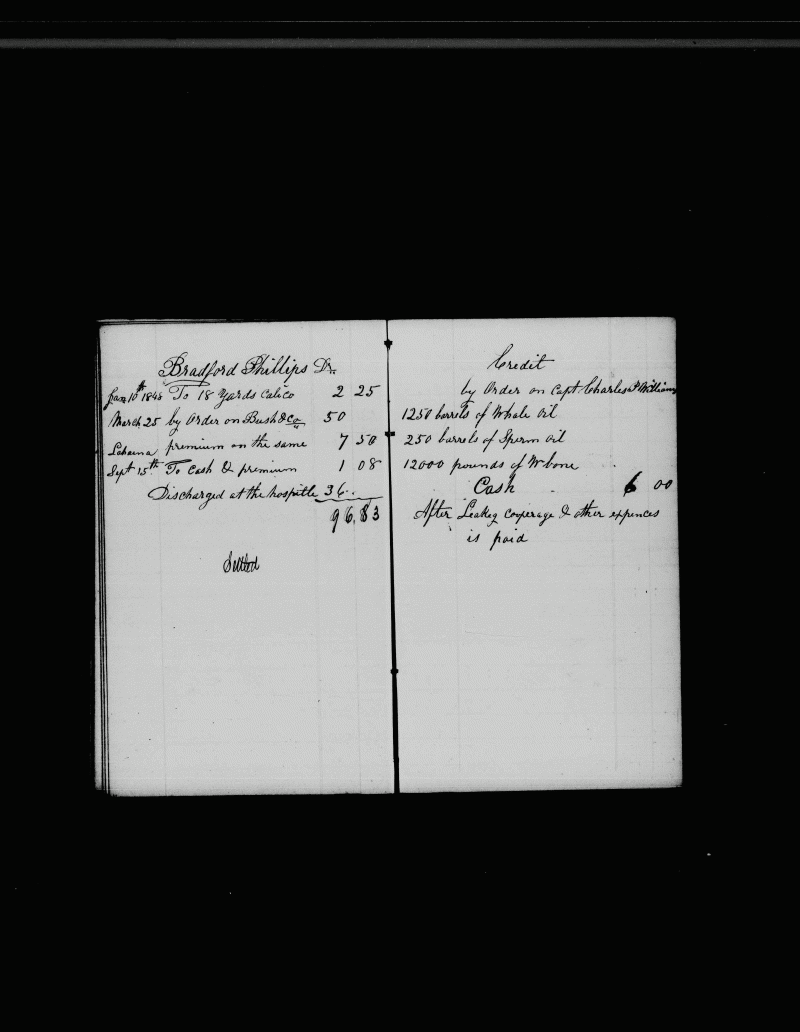 Bradford Phillips Dr.
Jan 10th 1848 To 18 Yards Calico 2 25
March 25 by Order on Bush & Co 50
Lahaina premium on the same 7 50
Sept 15th To Cash & premium 1 08
Discharged at the hospitle 36..
96.83
Settled
Credit
by Order on Capt. Charles Williams
1250 barrels of Whale Oil
250 barrels of Sperm Oil
12000 pounds of W bone
Cash 6 00
After Leakeg cooperage & other expences
is paid